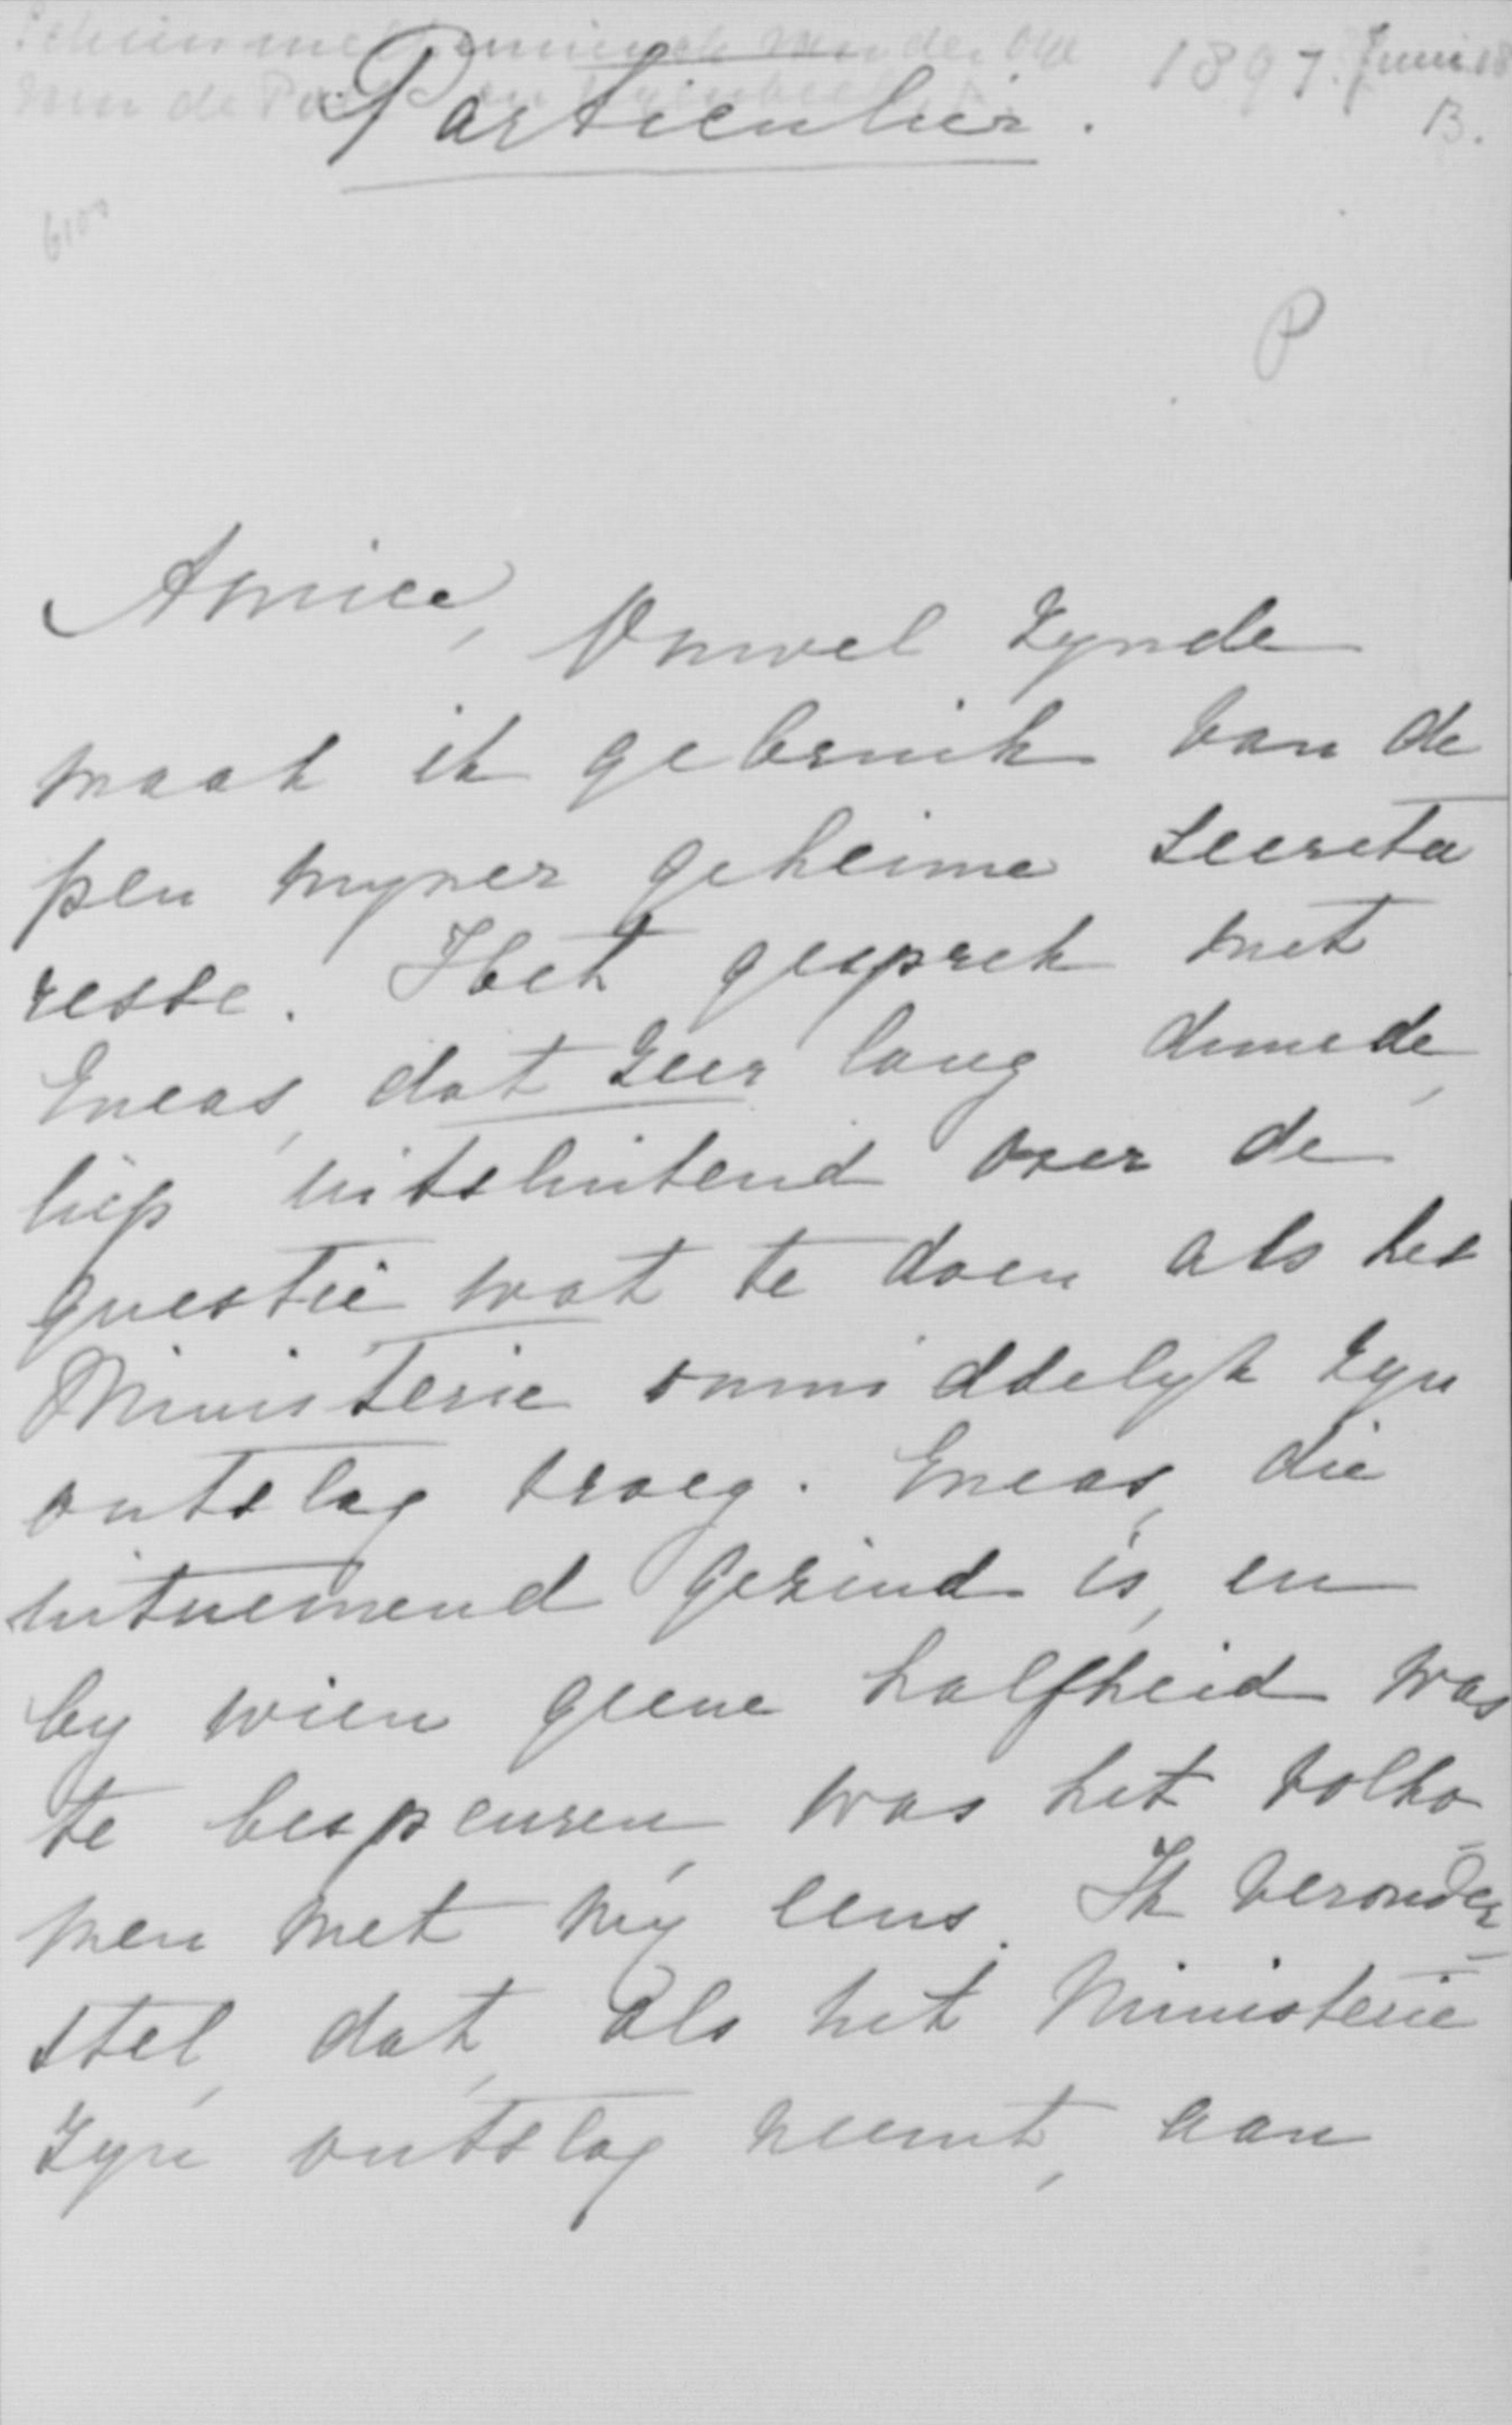 Schimmelpenninck van der Oye
1897. Juni
B.
van de Poll en Nyenbeek
Particulier.
6100
P
Amice, Onwel zynde
maak ik gebruik van de
pen myner geheime secreta
resse. Het gesprek met
Eneas, dat zeer lang duurde,
liep uitsluitend over de
questie wat te doen als het
Ministerie onmiddelyk zyn
ontslag vroeg. Eneas, die
uitnemend gezind is, en
by wien geene halfheid was
te bespeuren, was het volko-
men met my eens. Ik veronder-
stel, dat, als het Ministerie
zyn ontslag neemt, aan